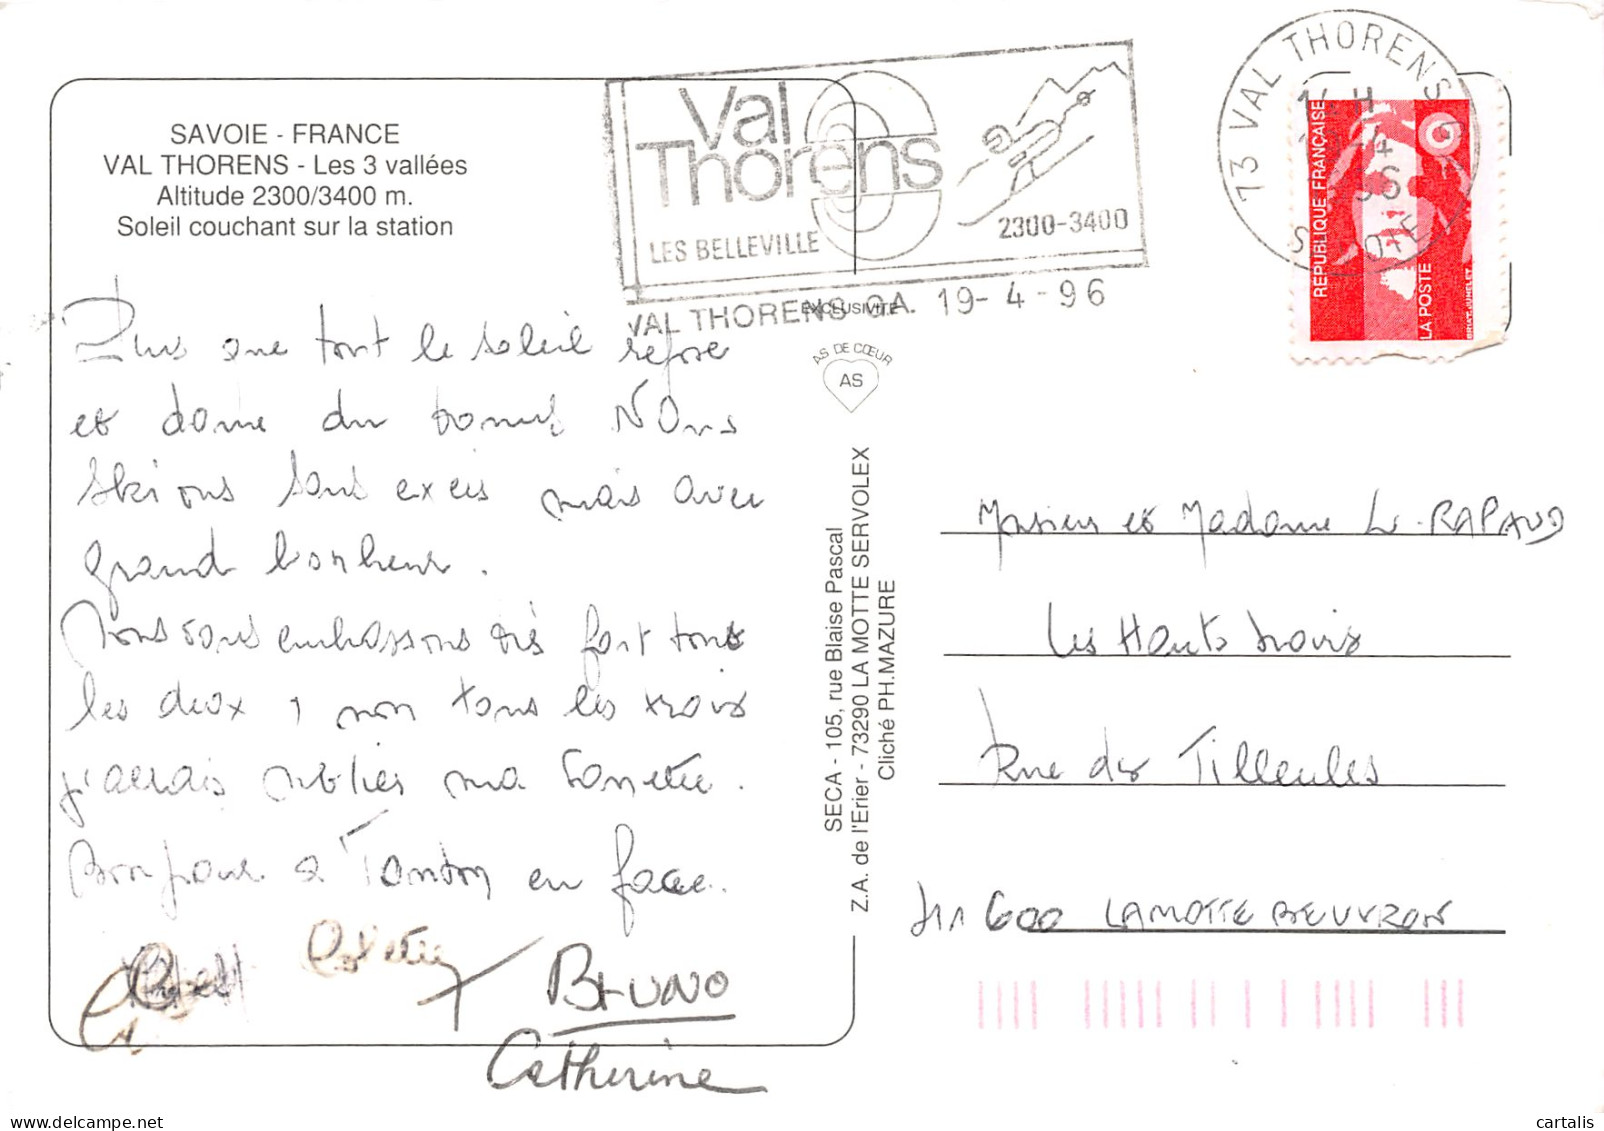 SAVOIE - FRANCE
VAL THORENS - Les 3 vallées
Altitude 2300/3400 m.
Soleil couchant sur la station
Val
Thorens
LES BELLEVILLE
2300-3400
VAL THORENS CA. 19-4-96
73 VAL THORENS
RÉPUBLIQUE FRANÇAISE
LA POSTE
EXCLUSIVITÉ
AS DE CŒUR
AS
SECA - 105, rue Blaise Pascal
Z.A. de l'Erier - 73290 LA MOTTE SERVOLEX
Cliché PH.MAZURE
Plus que tout le soleil repose
et donne du tonus NOus
skions sans excès mais avec
grand bonheur.
Nous vous embrassons très fort tous
les deux, non tous les trois
j'allais oublier ma
Bonjour à Tonton en face.
BRUNO
Catherine
Monsieur et Madame Le RAPAUD
Les Hauts
Rue des Tilleuls
41 600 LAMOTTE BEUVRON
cartalis